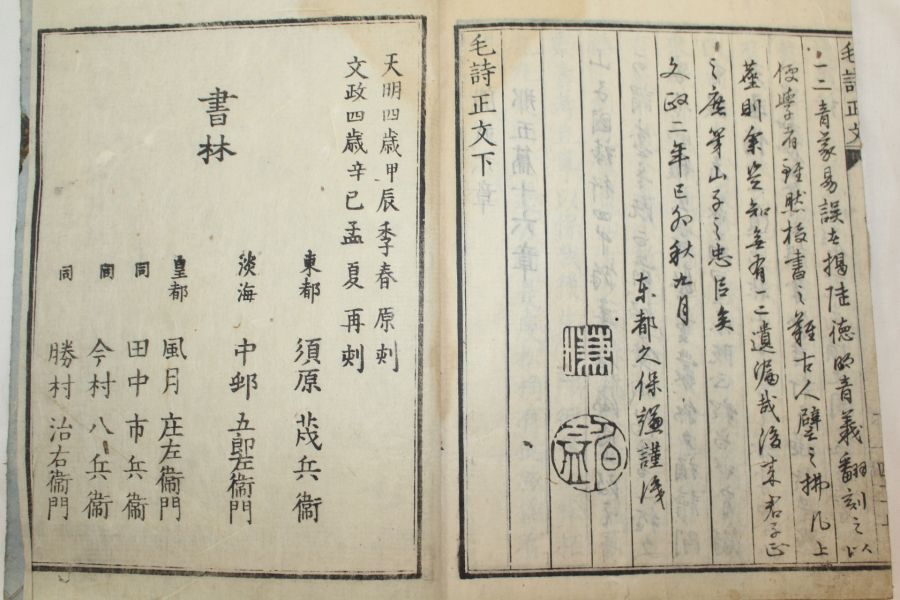 毛詩正文
一二音易誤者揭陸德明音義翻刻之以
便學者雖然校書之難古人譬之拂几上
塵則余豈知無有一二遺漏哉後来君子正
之庶幾山子之忠臣矣
文政二年己卯秋九月
東都久保謙謹識
謙
毛詩正文下
天明四歲甲辰季春 原刻
文政四歲辛巳孟夏 再刻
書林
東都 須原茂兵衞
淡海 中邨五郎左衞門
皇都 風月庄左衞門
同 田中市兵衞
同 今村八兵衞
同 勝村治右衞門